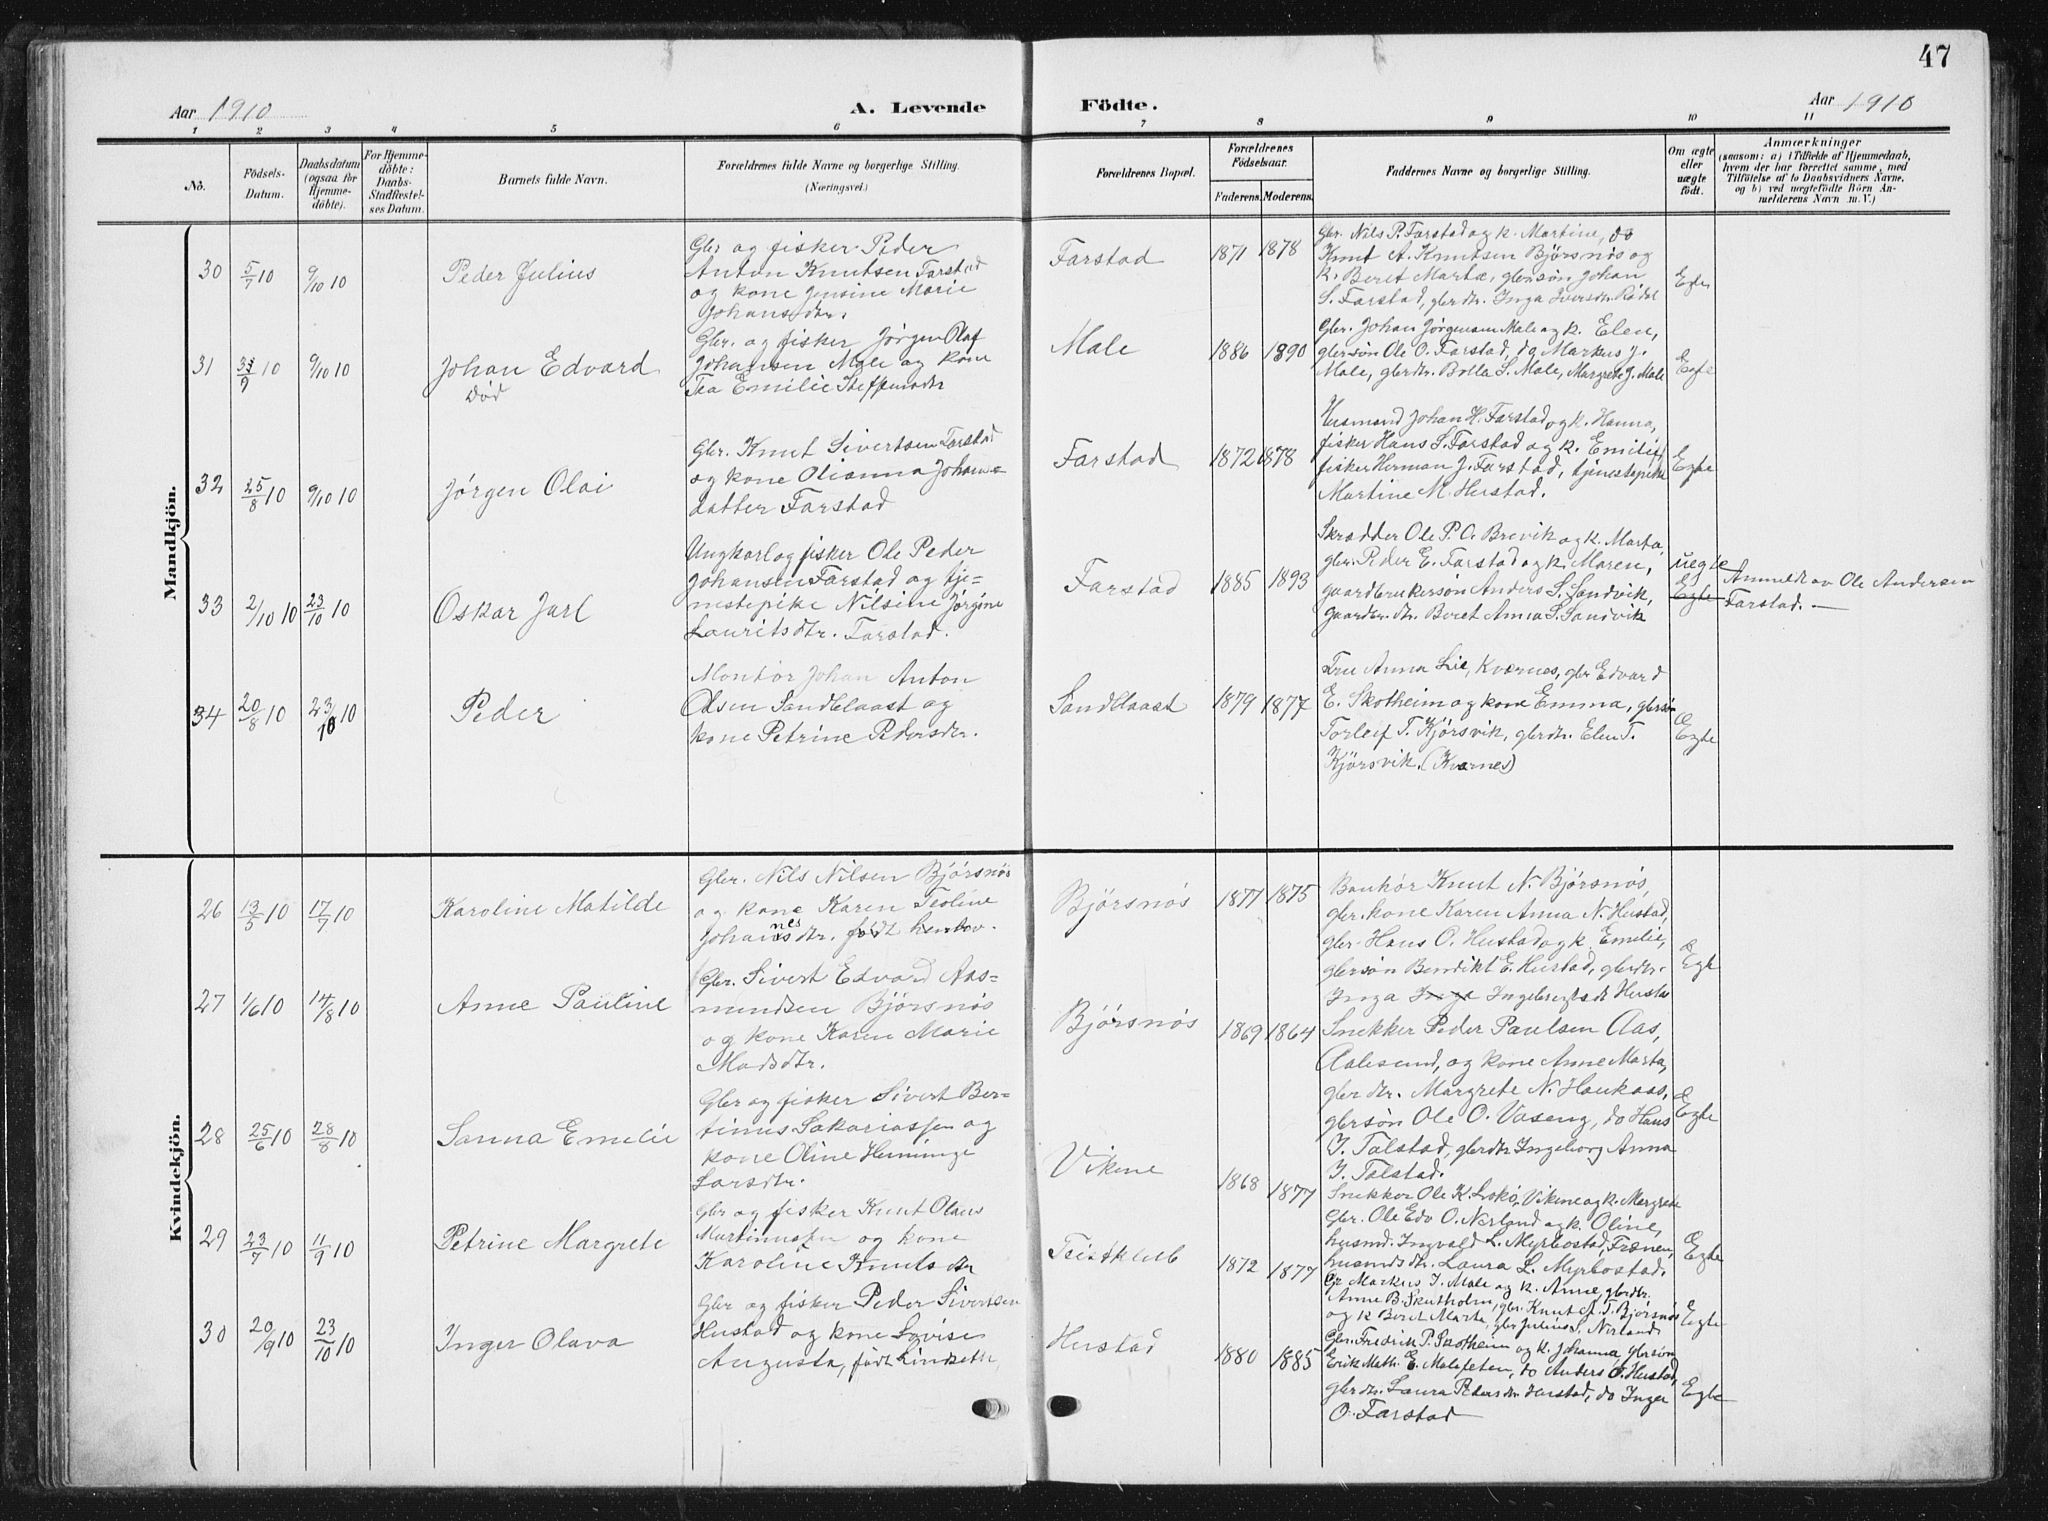 47
Aar 1910
A. Levende
Födte.
Aar 1910
1 2 3 4 5 6 7 8 9 10 11
No.
Födsels-
Datum.
Daabsdatum
(ogsaa for
Hjemme-
döbte).
For Hjemme-
döbte:
Daabs-
Stadfæstel-
ses Datum.
Barnets fulde Navn.
Forældrenes fulde Navne og borgerlige Stilling.
(Næringsvei.)
Forældrenes Bopæl.
Forældrenes
Födselsaar.
Faderens. Moderens.
Faddernes Navne og borgerlige Stilling.
Om ægte
eller
uægte
födt.
Anmærkninger
(saasom: a) i Tilfælde af Hjemmedaab,
hvem der har forrettet samme, med
Tilföielse af to Daabsvidners Navne,
og b) ved uægtefödte Börn An-
melderens Navn m. V.)
Mandkjön.
30 5/7 10 9/10 10
Peder Julius
Gbr. og fisker Peder
Anton Knutsen Farstad
og kone Jensine Marie
Johansdtr.
Farstad
1871 1878
Gbr. Nils P. Farstad og k. Martine, do
Knut A. Knutsen Bjørsnøs og
k. Beret Marta, gbrsøn Johan
S. Farstad, gbrdtr. Inga Iversdtr. Rødal
Egte
31 9/10 10
Johan Edvard
Død
Gbr. og fisker Jørgen Olaf
Johansen Male og kone
Tea Emilie Steffensdtr
Male
1886 1890
Gbr. Johan Jørgensen Male og k. Elen,
gbrsøn Ole O. Farstad, do Markus J.
Male, gbrdtr. Bolla S. Male, Margrete J. Male
Egte
32 25/8 10 9/10 10
Jørgen Olai
Gbr. Knut Sivertsen Farstad
og kone Olianna Johans=
datter Farstad
Farstad
1872 1878
Husmand Johan H. Farstad og k. Hanna,
fisker Hans S. Farstad og k. Emilie,
fisker Herman J. Farstad, tjenestepike
Martine M. Hustad.
Egte
33 2/10 10 23/10 10
Oskar Jarl
Ungkarl og fisker Ole Peder
Johansen Farstad og tje=
nestepike Nilsine Jørgine
Lauritsdtr. Farstad.
Farstad
1885 1893
Skrædder Ole P. O. Brevik og k. Marta,
gbr. Peder E. Farstad og k. Maren,
gaardbrukersøn Anders S. Sandvik,
gaardbr. dtr. Beret Anna S. Sandvik
uegte
Egte
Anmeldt av Ole Andersen
Farstad. —
34 20/8 10 23/10 10
Peder
Montør Johan Anton
Olsen Sandblaast og
kone Petrine Pedersdtr.
Sandblaast
1879 1877
Fru Anna Lie, Kværnes, gbr Edvard
E. Skotheim og kone Emma, gbrsøn
Torleif T. Kjørsvik, gbrdtr. Elen T.
Kjørsvik. (Kvernes)
Egte
Kvindekjön.
26 13/5 10 17/7 10
Karoline Matilde
Gbr. Nils Nilsen Bjørsnøs
og kone Karen Teoline
Johannesdtr. født
Bjørsnøs
1877 1875
Knut N. Bjørsnøs,
gbr. kone Karen Anna N. Hustad,
gbr. Hans O. Hustad og k. Emilie,
gbrsøn Bendikt E. Hustad, gbrdtr.
Inga Inga Ingebregtsdtr Hustad
Egte
27 1/6 10 14/8 10
Anne Pauline
Gbr. Sivert Edvard Aas-
mundsen Bjørsnøs
og kone Karen Marie
Madsdtr.
Bjørsnøs
1869 1864
Snekker Peder Paulsen Aas,
Aalesund, og kone Anne Marta,
gbr dtr. Margrete N. Haukaas,
gbrsøn Ole O. Vaseng, do Hans
I. Talstad, gbrdtr Ingeborg Anna
I. Talstad.
Egte
28 25/6 10 28/8 10
Sanna Emelie
Gbr og fisker Sivert Ber-
tinus Sakariassen og
kone Oline Henninge
Larsdtr.
Vikene
1868 1877
Snekker Ole K. Løkø, Vikene og k. Margrete
Gbr. Ole Edv O. Nerland og k. Oline,
husmd. Ingvald L. Myrbostad, Frænen,
husmdsdtr. Laura L. Myrbostad.
Egte
29 23/7 10 11/9 10
Petrine Margrete
Gbr og fisker Knut Olaus
Martinussen og kone
Karoline Knutsdtr
1872 1877
Gr Markus J. Male og k. Anne, gbrdtr.
Anne B. Skutholm, gbr. Knut A. T. Bjørsnøs
og k Beret Marta, gbr Julius S. Nerland.
Egte
30 20/9 10 23/10 10
Inger Olava
Gbr og fisker Peder Sivertsen
Hustad og kone Lovise
Augusta, født Lindseth
Hustad
1880 1885
Gbr. Fredrik P. Skotheim og k. Johanna, gbrsøn
Erik Math. E. Malefeten, do Anders O. Hustad,
gbrdtr. Laura Pedersdtr. Farstad, do Inger
O. Farstad
Egte